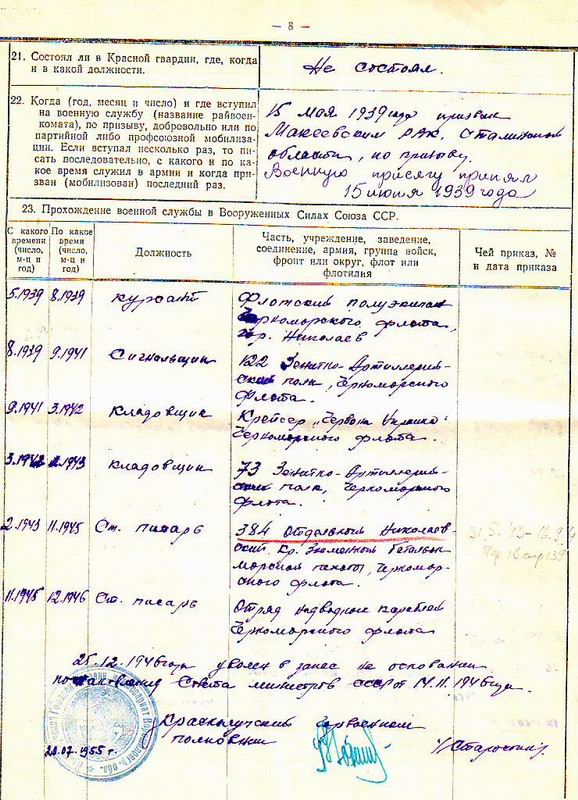 — 8 —
21. Состоял ли в Красной гвардии, где, когда
и в какой должности.
Не состоял.
22. Когда (год, месяц и число) и где вступил
на военную службу (название райвоен-
комата), по призыву, добровольно или по
партийной либо профсоюзной мобилиза-
ции. Если вступал несколько раз, то пи-
сать последовательно, с какого и по ка-
кое время служил в армии и когда при-
зван (мобилизован) последний раз.
15 мая 1939 года призван
Макеевским РВК, Сталинской
области, по призыву.
Военную присягу принял
15 июня 1939 года
23. Прохождение военной службы в Вооруженных Силах Союза ССР.
С какого
времени
(число,
м-ц и
год)
По какое
время
(число,
м-ц и
год)
Должность
Часть, учреждение, заведение,
соединение, армия, группа войск,
фронт или округ, флот или
флотилия
Чей приказ, №
и дата приказа
5.1939 8.1939 курсант Флотский полуэкипаж
Черноморского флота,
гор. Николаев
8.1939 9.1941 Сигнальщик 122 Зенитно-Артиллерий-
ский полк, Черноморского
флота.
9.1941 3.1942 Кладовщик Крейсер „Червона Украина"
Черноморского флота.
3.1942 2.1943 кладовщик 73 Зенитно-Артиллерий-
ский полк, Черноморского
флота.
2.1943 11.1945 Ст. писарь 384 Отдельный Николаев-
ский, Кр. Знаменный батальон
морской пехоты, Черномор-
ского флота.
11.1945 12.1946 Ст. писарь Отряд подводных кораблей
Черноморского флота
25.12.1946 года уволен в запас на основании
постановления Совета министров СССР от 14.11.1946 года.
Краснолучский горвоенком
полковник
/Старочкин/
20.07.1955 г.